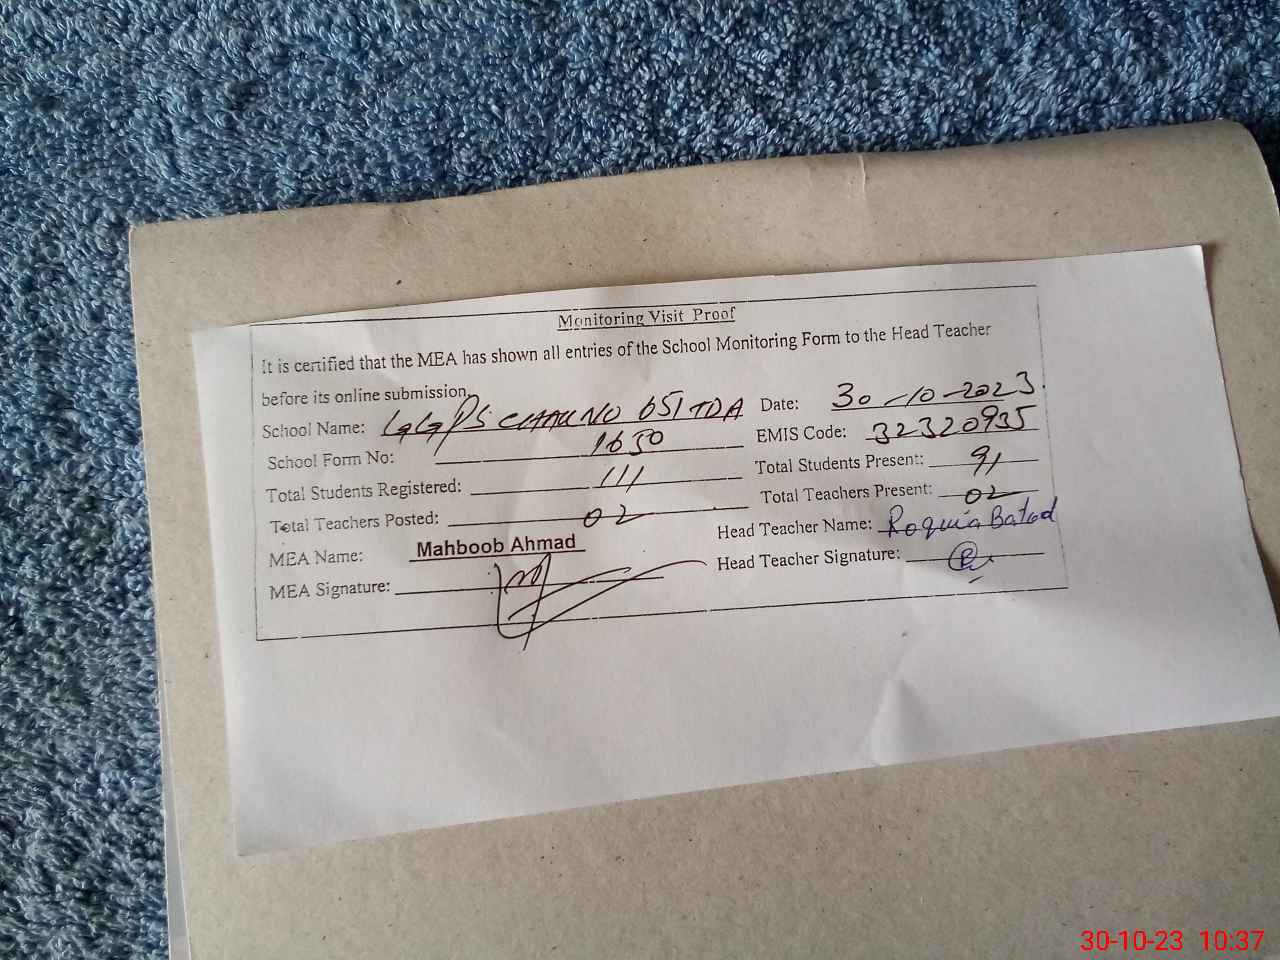 Monitoring Visit Proof
It is certified that the MEA has shown all entries of the School Monitoring Form to the Head Teacher
before its online submission.
School Name: GGPS CHAK NO 651 TDA Date: 30-10-2023
School Form No: 1650 EMIS Code: 32320935
Total Students Registered: 111 Total Students Present: 91
Total Teachers Posted: 02 Total Teachers Present: 02
MEA Name: Mahboob Ahmad Head Teacher Name: Roquia
MEA Signature: Head Teacher Signature:
30-10-23 10:37